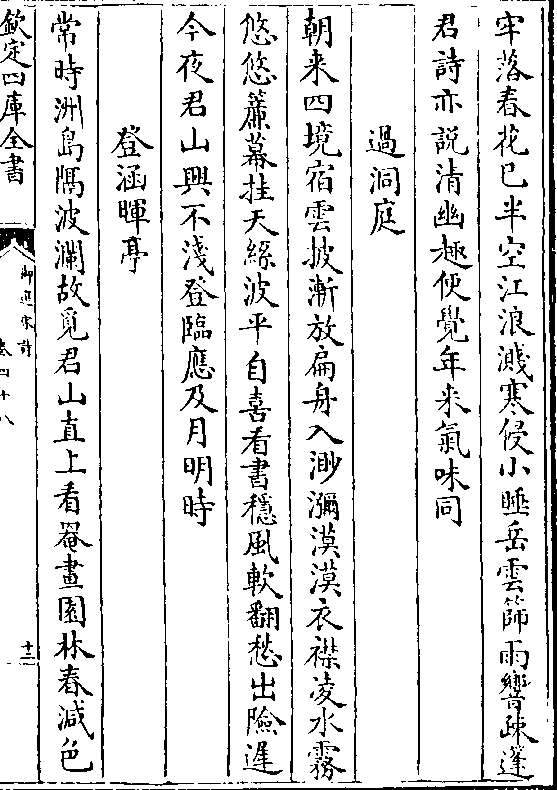 牢落春花已半空江浪濺寒侵小睡岳雲篩雨響疎蓬
君詩亦説清幽趣便覺年来氣味同
過洞庭
朝来四境宿雲披漸放扁舟入渺瀰漠漠衣襟凌水霧
悠悠簾幕挂天絲波平自喜看書穩風軟翻愁出險遲
今夜君山興不淺登臨應及月明時
登涵暉亭
常時洲島隅波瀾故覓君山直上看罨畫園林春減色
欽定四庫全書
御選宋詩
卷四十八
十三